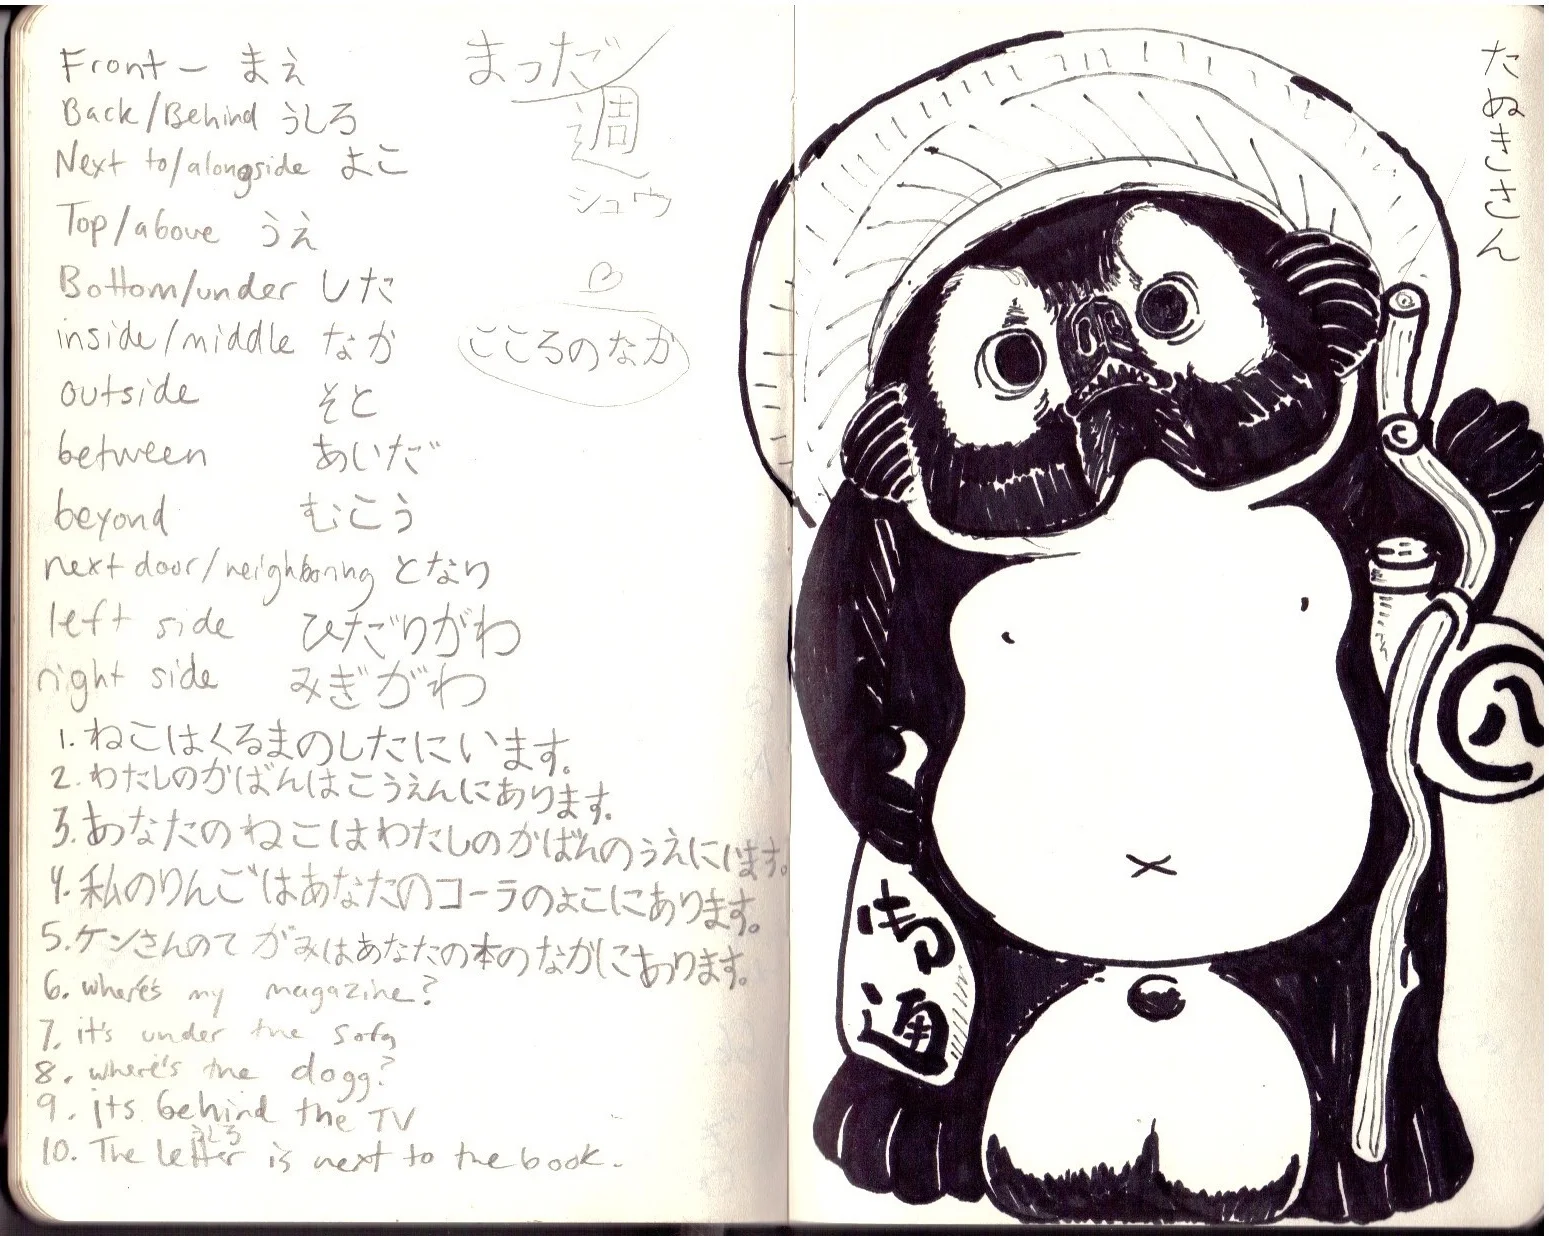 Front – まえ
Back/Behind うしろ
Next to/alongside よこ
Top/above うえ
Bottom/under した
inside/middle なか
outside そと
between あいだ
beyond むこう
next door/neighboring となり
left side ひだりがわ
right side みぎがわ
1. ねこはくるまのしたにいます。
2. わたしのかばんはこうえんにあります。
3. あなたのねこはわたしのかばんのうえにいます。
4. 私のりんごはあなたのコーラのよこにあります。
5. ケンさんのてがみはあなたの本のなかにあります。
6. where's my magazine?
7. it's under the sofa
8. where's the dogg?
9. its behind the TV
うしろ
10. The letter is next to the book.
まっだ
週
シュウ
こころのなか
たぬきさん
八
御
通